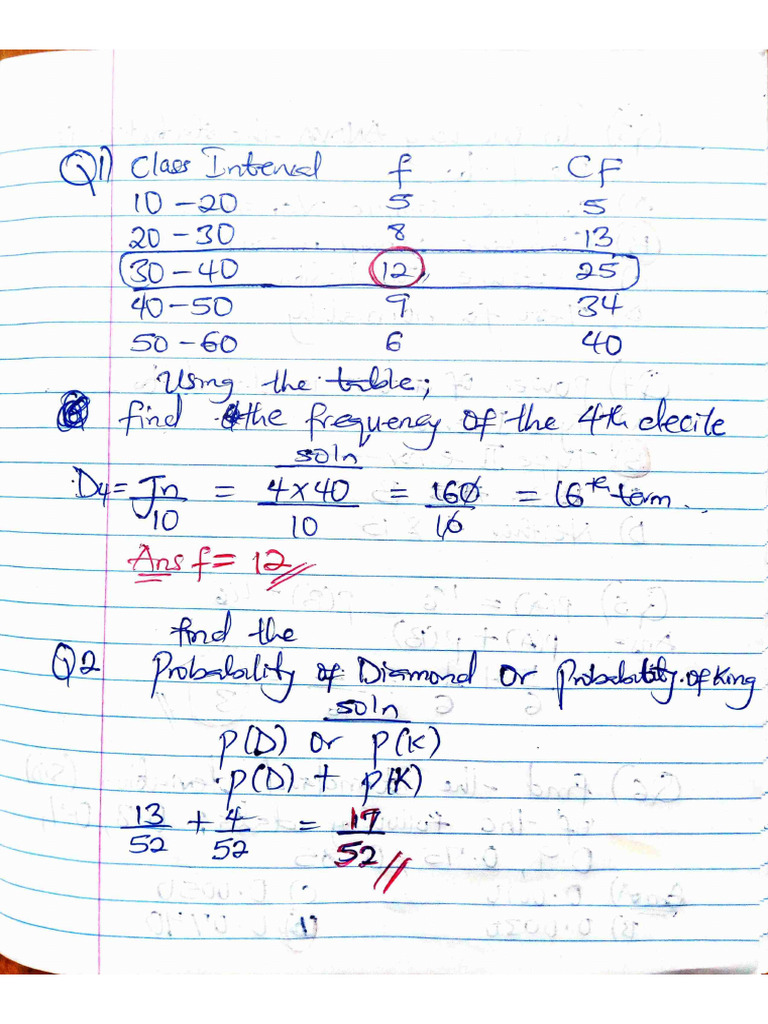 Q1) Class Interval f CF
10 - 20 5 5
20 - 30 8 13
30 - 40 12 25
40 - 50 9 34
50 - 60 6 40
Using the table;
find the frequency of the 4th decile
soln
D4 = Jn/10 = 4×40/10 = 160/10 = 16th term
Ans f = 12
find the
Q2 Probability of Diamond or probability of King
soln
P(D) or P(K)
P(D) + P(K)
13/52 + 4/52 = 17/52